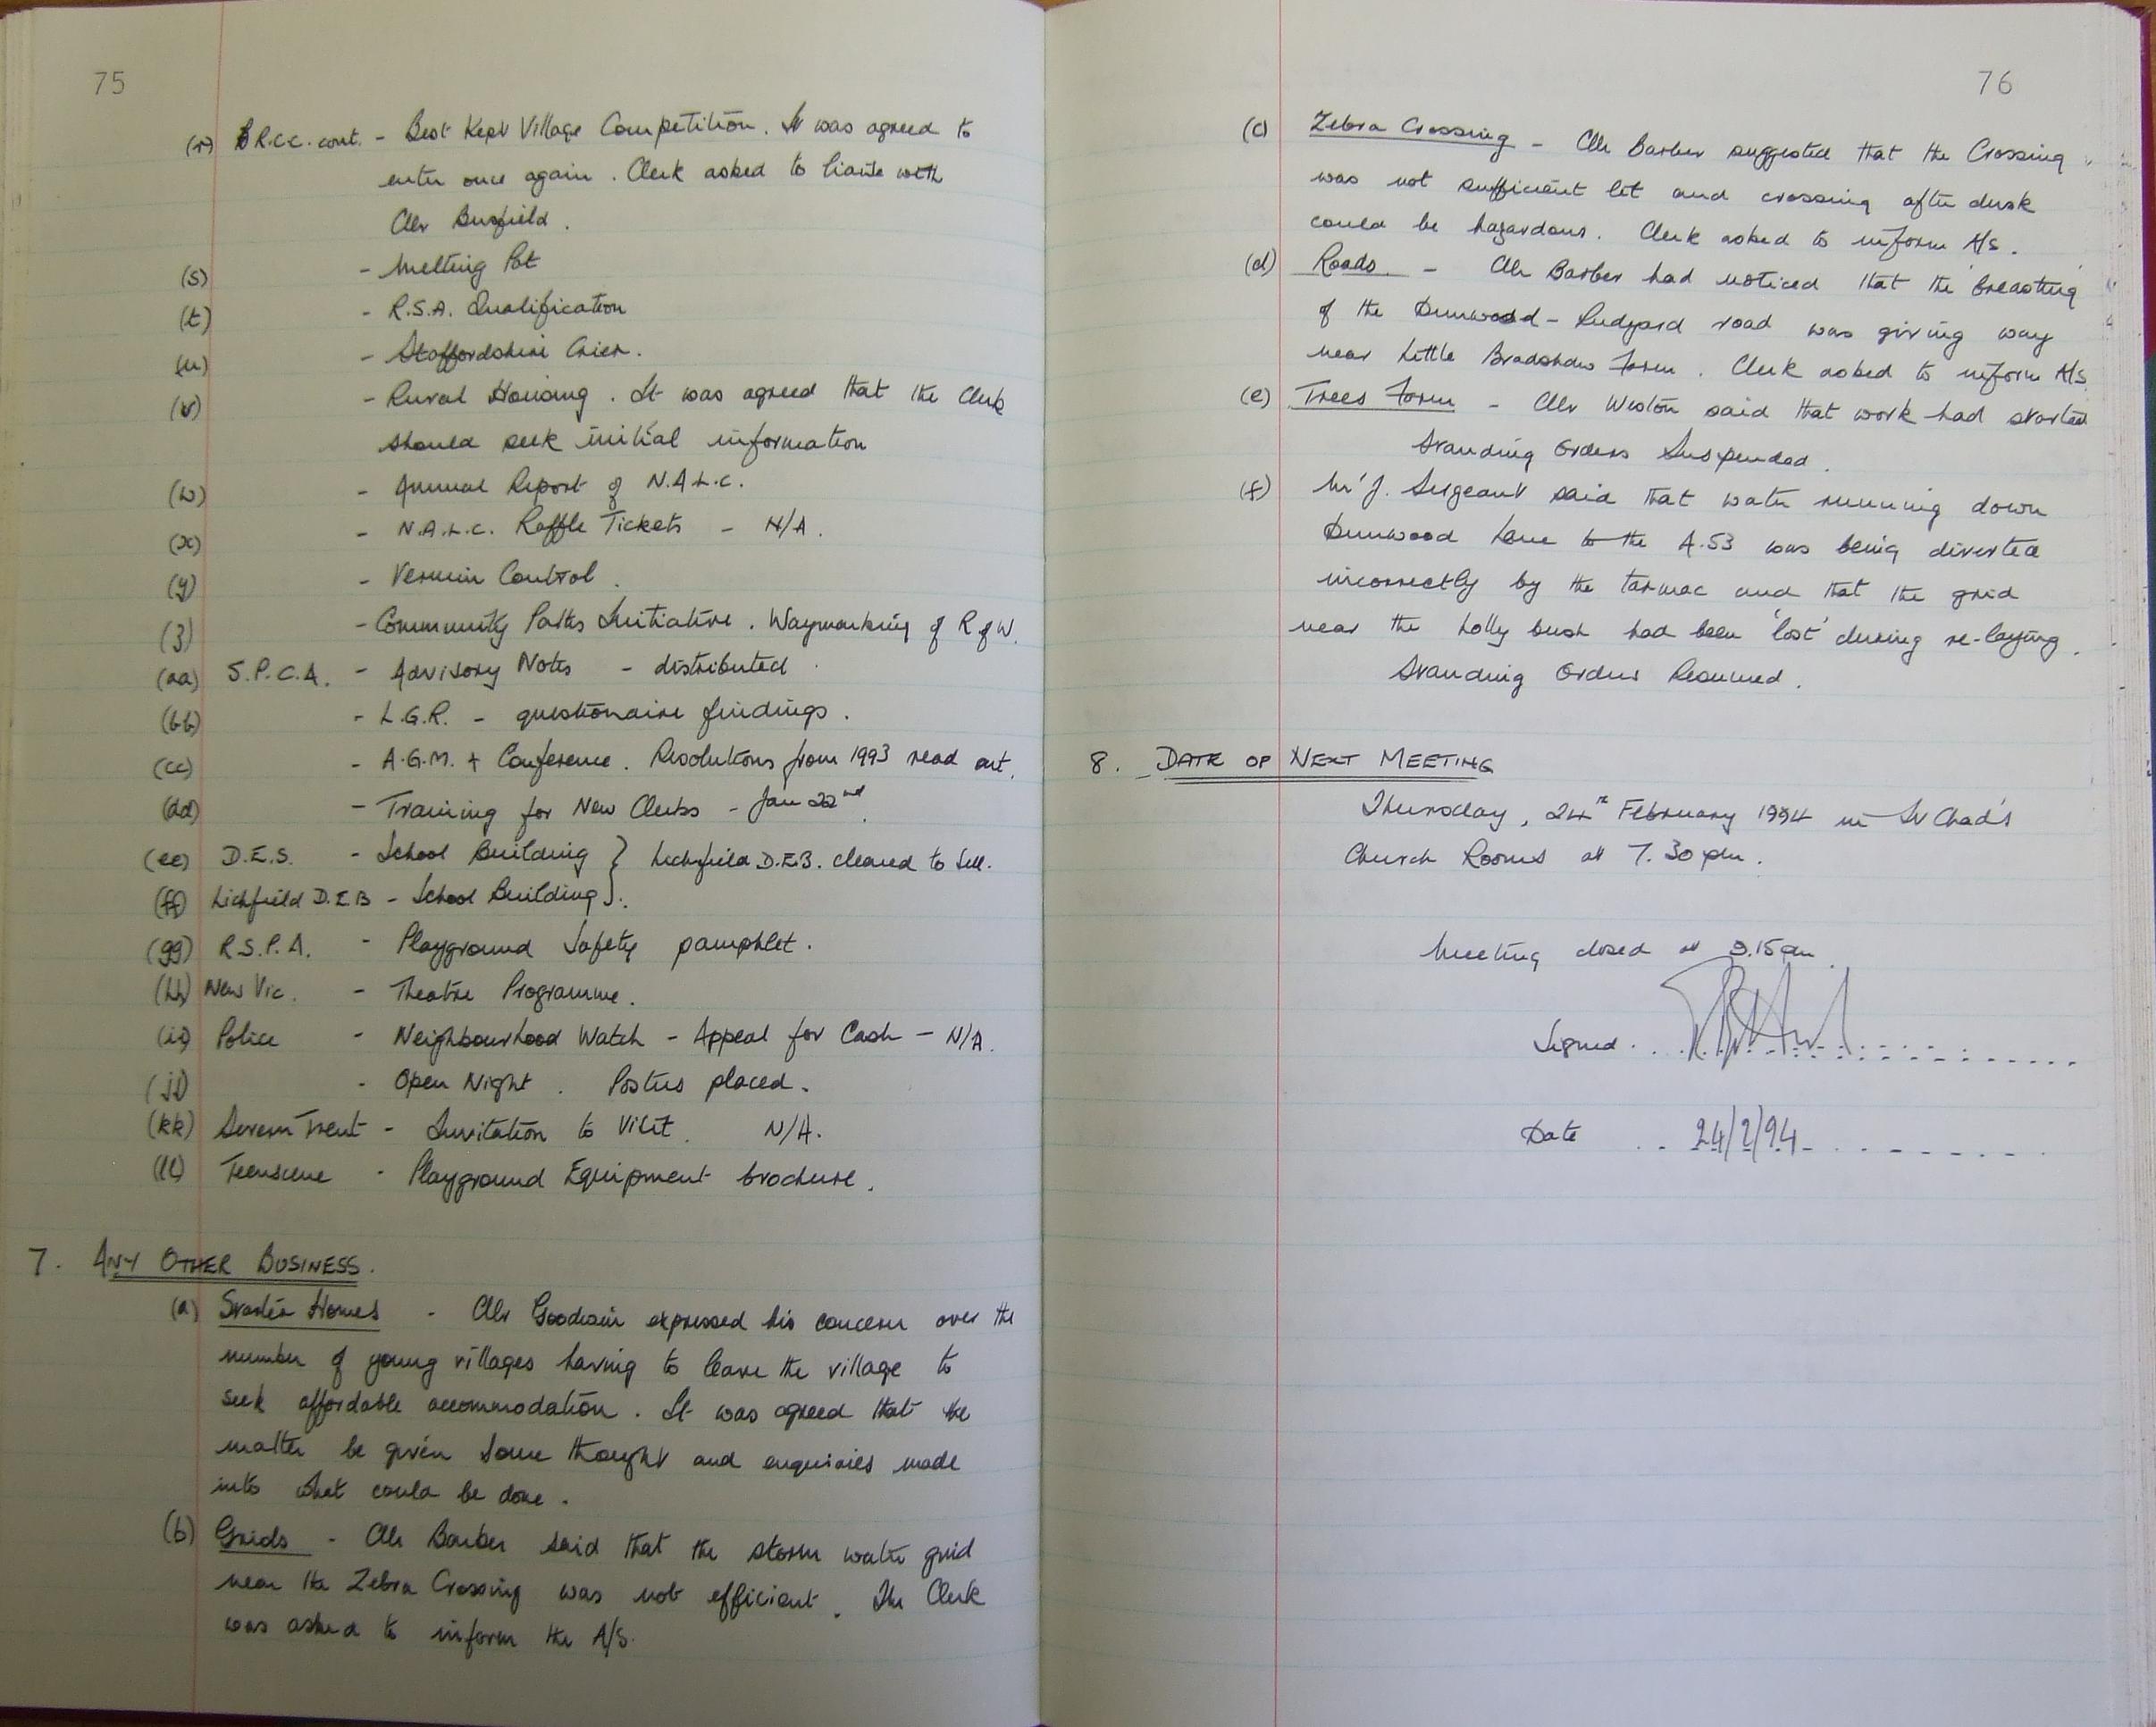 75
(r) B.R.C.C. cont. - Best Kept Village Competition. It was agreed to
enter once again. Clerk asked to liaise with
Cllr Busfield.
(s) - Melting Pot
(t) - R.S.A. Qualification
(u) - Staffordshire Crier.
(v) - Rural Housing. It was agreed that the Clerk
should seek initial information
(w) - Annual Report of N.A.L.C.
(x) - N.A.L.C. Raffle Tickets - N/A.
(y) - Vermin Control.
(z) - Community Paths Initiative. Waymarking of R of W.
(aa) S.P.C.A. - Advisory Notes - distributed.
(bb) - L.G.R. - questionaire findings.
(cc) - A.G.M. + Conference. Resolutions from 1993 read out.
(dd) - Training for New Clerks - Jan 22nd.
(ee) D.E.S. - School Building } Lichfield D.E.B. cleared to sell.
(ff) Lichfield D.E.B - School Building }.
(gg) R.S.P.A. - Playground Safety pamphlet.
(hh) New Vic. - Theatre Programme.
(ii) Police - Neighbourhood Watch - Appeal for Cash - N/A.
(jj) - Open Night. Posters placed.
(kk) Severn Trent - Invitation to Visit. N/A.
(ll) Teenscene - Playground Equipment brochure.
7. ANY OTHER BUSINESS.
(a) Starter Homes - Cllr Goodwin expressed his concern over the
number of young villages having to leave the village to
seek affordable accommodation. It was agreed that the
matter be given some thought and enquiries made
into what could be done.
(b) Grids - Cllr Barber said that the storm water grid
near the Zebra Crossing was not efficient. The Clerk
was asked to inform the A/S.
76
(c) Zebra Crossing - Cllr Barber suggested that the Crossing
was not sufficient lit and crossing after dusk
could be hazardous. Clerk asked to inform A/S.
(d) Roads - Cllr Barber had noticed that the breasting
of the Dunwood - Rudyard road was giving way
near Little Bradshaw Farm. Clerk asked to inform A/S.
(e) Trees Farm - Cllr Weston said that work had started
Standing Orders Suspended.
(f) Mr J. Sergeant said that water running down
Dunwood Lane to the A.53 was being diverted
incorrectly by the tarmac and that the grid
near the holly bush had been 'lost' during re-laying.
Standing Orders Resumed.
8. DATE OF NEXT MEETING
Thursday, 24th February 1994 in St Chad's
Church Rooms at 7.30 pm.
Meeting closed at 9.15pm.
Signed
Date 24/2/94